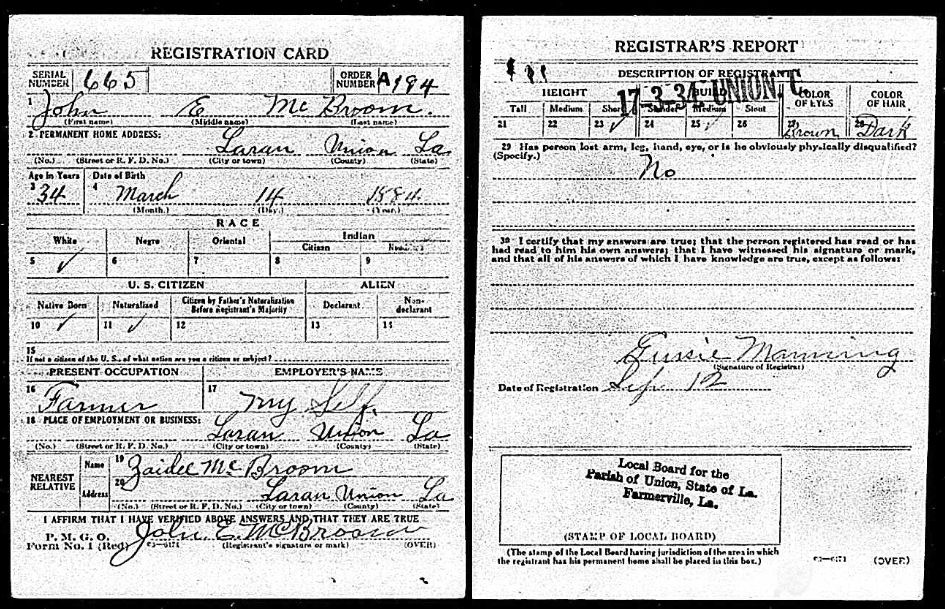 REGISTRATION CARD
SERIAL NUMBER 665
ORDER NUMBER A194
1 John E. McBroom.
(First name) (Middle name) (Last name)
2 PERMANENT HOME ADDRESS:
Laran Union La
(No.) (Street or R. F. D. No.) (City or town) (County) (State)
Age in Years Date of Birth
3 34 4 March 14 1884
(Month.) (Day.) (Year.)
RACE
White Negro Oriental Indian
Citizen
5 ✓ 6 7 8 9
U. S. CITIZEN ALIEN
Native Born Naturalized Citizen by Father's Naturalization Before Registrant's Majority Declarant Non-declarant
10 ✓ 11 ✓ 12 13 14
15
If not a citizen of the U. S., of what nation are you a citizen or subject?
PRESENT OCCUPATION EMPLOYER'S NAME
16 Farmer 17 My Self.
18 PLACE OF EMPLOYMENT OR BUSINESS:
Laran Union La
(No.) (Street or R. F. D. No.) (City or town) (County) (State)
NEAREST RELATIVE
Name 19 Zaidee McBroom
Address 20 Laran Union La
(No.) (Street or R. F. D. No.) (City or town) (County) (State)
I AFFIRM THAT I HAVE VERIFIED ABOVE ANSWERS AND THAT THEY ARE TRUE
P. M. G. O.
Form No. 1 (Red) John E. McBroom
(Registrant's signature or mark) (OVER)
REGISTRAR'S REPORT
17-3-34 UNION, C
DESCRIPTION OF REGISTRANT
HEIGHT BUILD COLOR OF EYES COLOR OF HAIR
Tall Medium Short Slender Medium Stout
21 22 23 ✓ 24 25 ✓ 26 27 Brown 28 Dark
29 Has person lost arm, leg, hand, eye, or is he obviously physically disqualified?
(Specify.) No
30 I certify that my answers are true; that the person registered has read or has
had read to him his own answers; that I have witnessed his signature or mark,
and that all of his answers of which I have knowledge are true, except as follows:
Gussie Manning
(Signature of Registrar)
Date of Registration Sep 12
Local Board for the
Parish of Union, State of La.
Farmerville, La.
(STAMP OF LOCAL BOARD)
(The stamp of the Local Board having jurisdiction of the area in which
the registrant has his permanent home shall be placed in this box.)
(OVER)